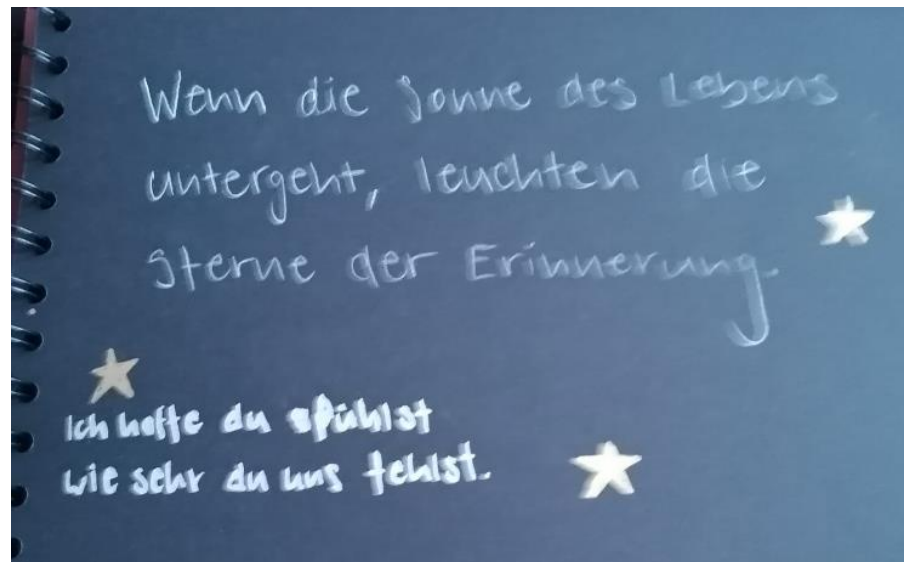 Wenn die Sonne des Lebens
untergeht, leuchten die
Sterne der Erinnerung.
Ich hoffe du spühlst
wie sehr du uns fehlst.